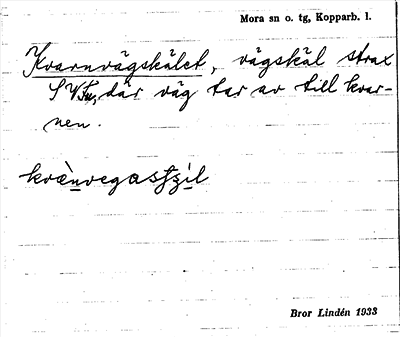 Mora sn o. tg, Kopparb. l.
Kvarnvägskälet, vägskäl strax
S V där väg tar av till kvar-
nen.
Bror Lindén 1933